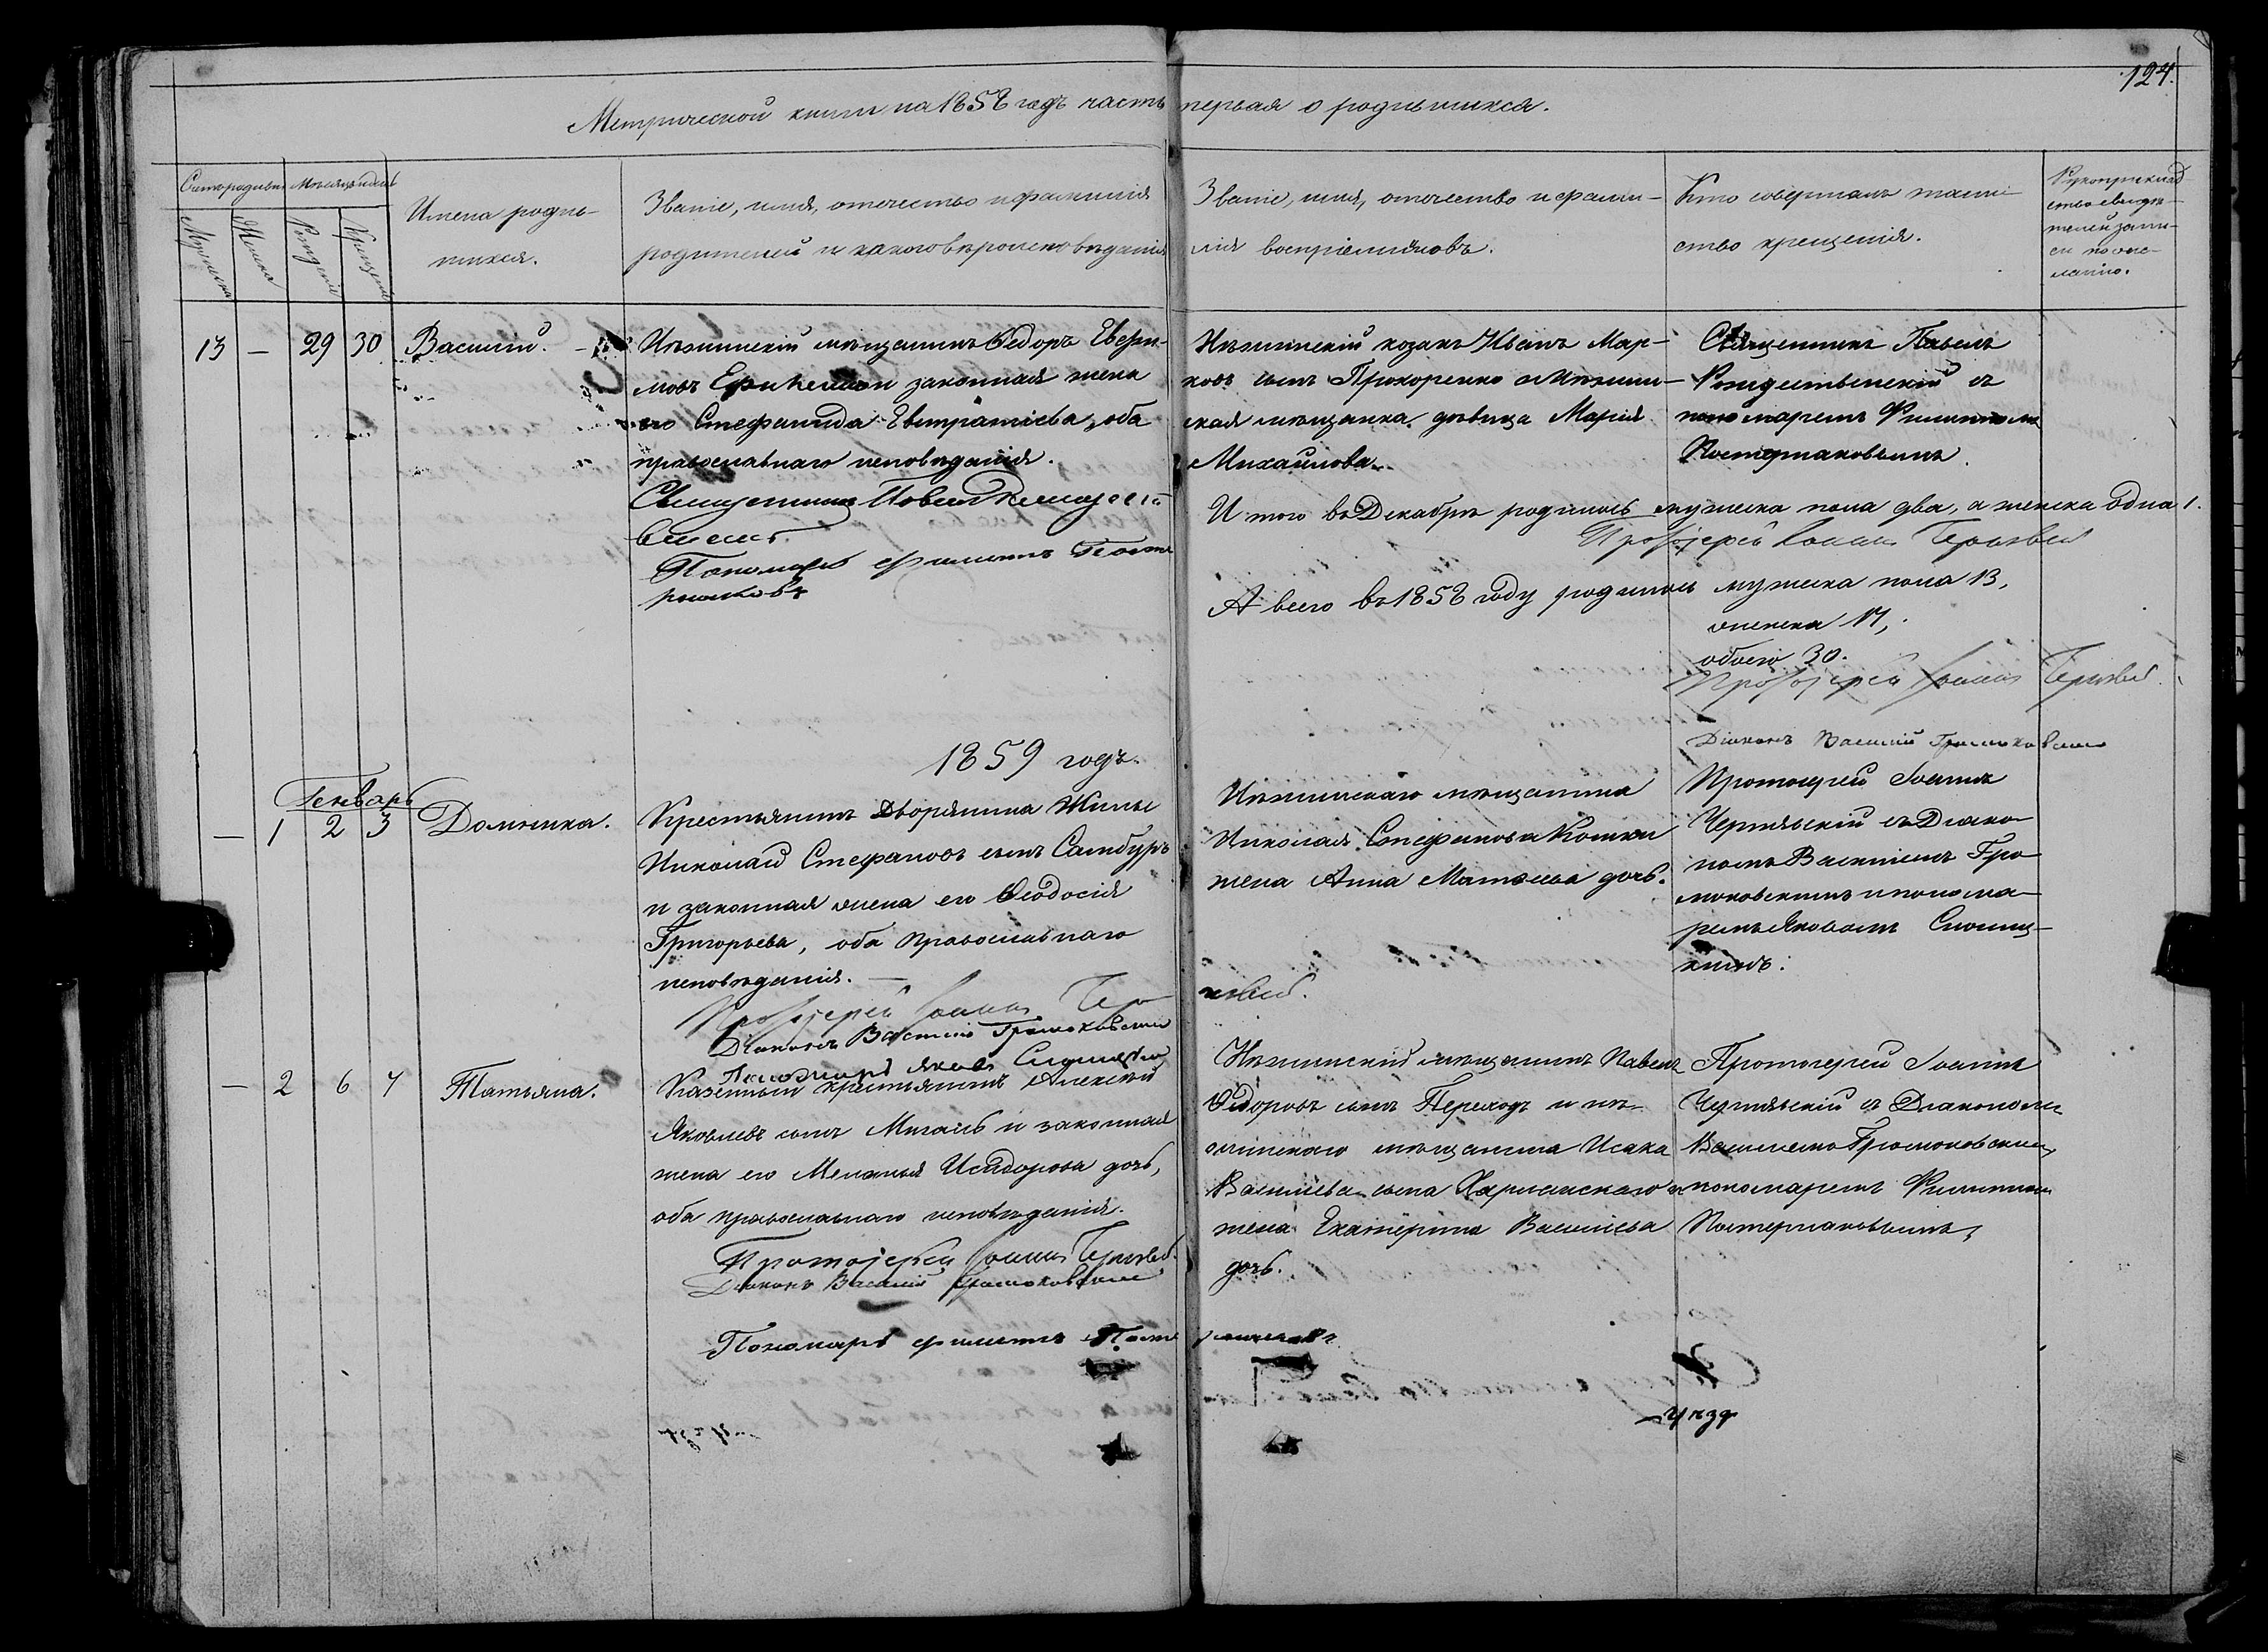 124.
Метрической книги на 1858 годъ часть первая о родившихся.
Счетъ родившихся
Мѣсяцъ и день
Мужеска
Женска
Рожденія
Крещенія
Имена родив-
шихся.
Званіе, имя, отчество и фамилія
родителей и какого вѣроисповѣданія
Званіе, имя, отчество и фами-
лія воспріемниковъ.
Кто совершалъ таин-
ство крещенія.
Рукоприклад-
ство свидѣ-
телей запи-
си по же-
ланію.
13 — 29 30 Василій.
Нѣжинскій мѣщанинъ Ѳедоръ
законная жена
его Стефанида Евстратіева, оба
православнаго исповѣданія.
Священникъ Павелъ Рождест-
венскій
Пономарь Филиппъ Посте
рнаковъ
Нѣжинскій козакъ Иванъ Мар-
ковъ сынъ Прохоренко и Нѣжин-
ская мѣщанка дѣвица Марія
Михайлова.
Священникъ Павелъ
Рождественскій съ
пономаремъ Филиппомъ
Постернаковымъ.
Итого въ Декабрѣ родилось мужеска пола два, а женска одна 1.
Протоіерей Іоаннъ
А всего въ 1858 году родилось мужеска пола 13,
женска 17,
обоего 30.
Протоіерей Іоаннъ
Діаконъ Василій Громоковскій
1859 годъ.
Генварь
— 1 2 3 Домника.
Крестьянинъ Дворянина Жилы
Николай Стефановъ сынъ Самбуръ
и законная жена его Ѳеодосія
Григорьева, оба православнаго
исповѣданія. —
Протоіерей Іоаннъ
Діаконъ Василій Громоковскій
Пономарь Яковъ
Нѣжинскаго мѣщанина
Николая Стефанова Кошки
жена Анна Матвѣева дочь.
Протоіерей Іоаннъ
Чернявскій съ Діако-
номъ Василіемъ Гро-
моковскимъ и понома-
ремъ Яковомъ
— 2 6 7 Татьяна.
Казенный крестьянинъ Алексѣй
Яковлевъ сынъ Мигаль и законная
жена его Меланья Исидорова дочь,
оба православнаго исповѣданія.
Протоіерей Іоаннъ
Діаконъ Василій Громоковскій
Пономарь Филиппъ Постернаковъ
Нѣжинскій мѣщанинъ Павелъ
Ѳедоровъ сынъ Переходъ и нѣ-
жинскаго мѣщанина Исака
Василіева сына
жена Екатерина Василіева
дочь.
Протоіерей Іоаннъ
Чернявскій съ Діакономъ
Василіемъ Громоковскимъ
и пономаремъ Филиппомъ
Постернаковымъ,